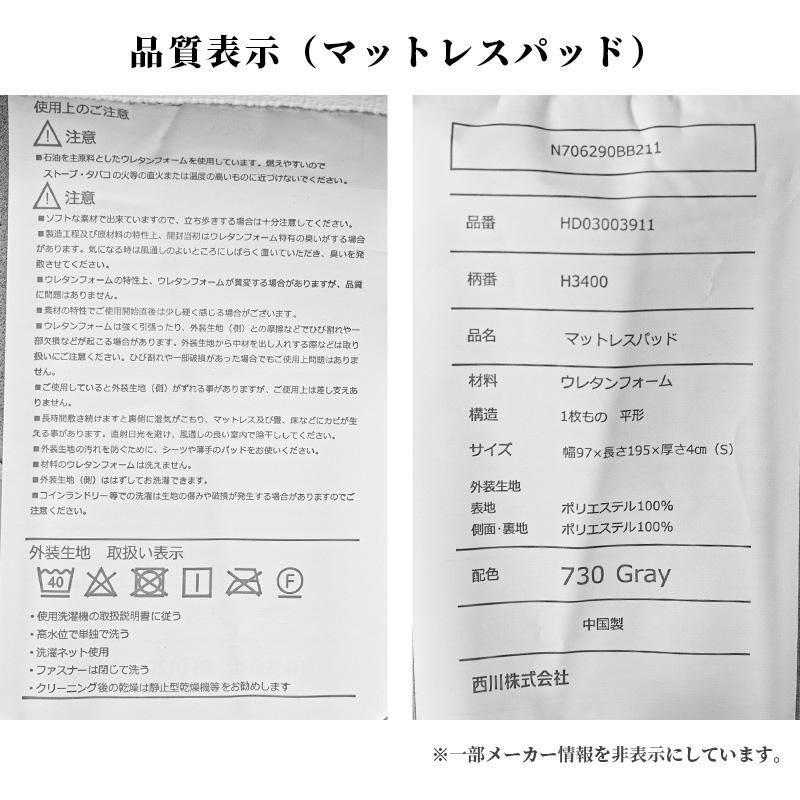 品質表示（マットレスパッド）
使用上のご注意
注意
■石油を主原料としたウレタンフォームを使用しています。燃えやすいので
ストーブ・タバコの火等の直火または温度の高いものに近づけないでください。
注意
■ソフトな素材で出来ていますので、立ち歩きする場合は十分注意してください。
■製造工程及び原材料の特性上、開封当初はウレタンフォーム特有の臭いがする場合
があります。気になる時は風通しのよいところにしばらく置いていただき、臭いを発
散させてください。
■ウレタンフォームの特性上、ウレタンフォームが黄変する場合がありますが、品質
に問題はありません。
■素材の特性でご使用開始直後は少し硬く感じる場合がございます。
■ウレタンフォームは強く引張ったり、外装生地（側）との摩擦などでひび割れや一
部欠損などが起こる場合があります。外装生地から中材を出し入れする際などは取り
扱いにご注意ください。ひび割れや一部破損があった場合でもご使用上問題はありま
せん。
■ご使用していると外装生地（側）がずれる事がありますが、ご使用上は差し支えあ
りません。
■長時間敷き続けますと裏側に湿気がこもり、マットレス及び畳、床などにカビが生
える事があります。直射日光を避け、風通しの良い室内で陰干ししてください。
■外装生地の汚れを防ぐために、シーツや薄手のパッドをお使いください。
■材料のウレタンフォームは洗えません。
■外装生地（側）ははずしてお洗濯できます。
■コインランドリー等での洗濯は生地の傷みや破損が発生する場合がありますのでご
注意ください。
外装生地　取扱い表示
40
F
・使用洗濯機の取扱説明書に従う
・高水位で単独で洗う
・洗濯ネット使用
・ファスナーは閉じて洗う
・クリーニング後の乾燥は静止型乾燥機等をお勧めします
N706290BB211
品番 HD03003911
柄番 H3400
品名 マットレスパッド
材料 ウレタンフォーム
構造 1枚もの 平形
サイズ 幅97×長さ195×厚さ4㎝（S）
外装生地
表地 ポリエステル100%
側面・裏地 ポリエステル100%
配色 730 Gray
中国製
西川株式会社
※一部メーカー情報を非表示にしています。